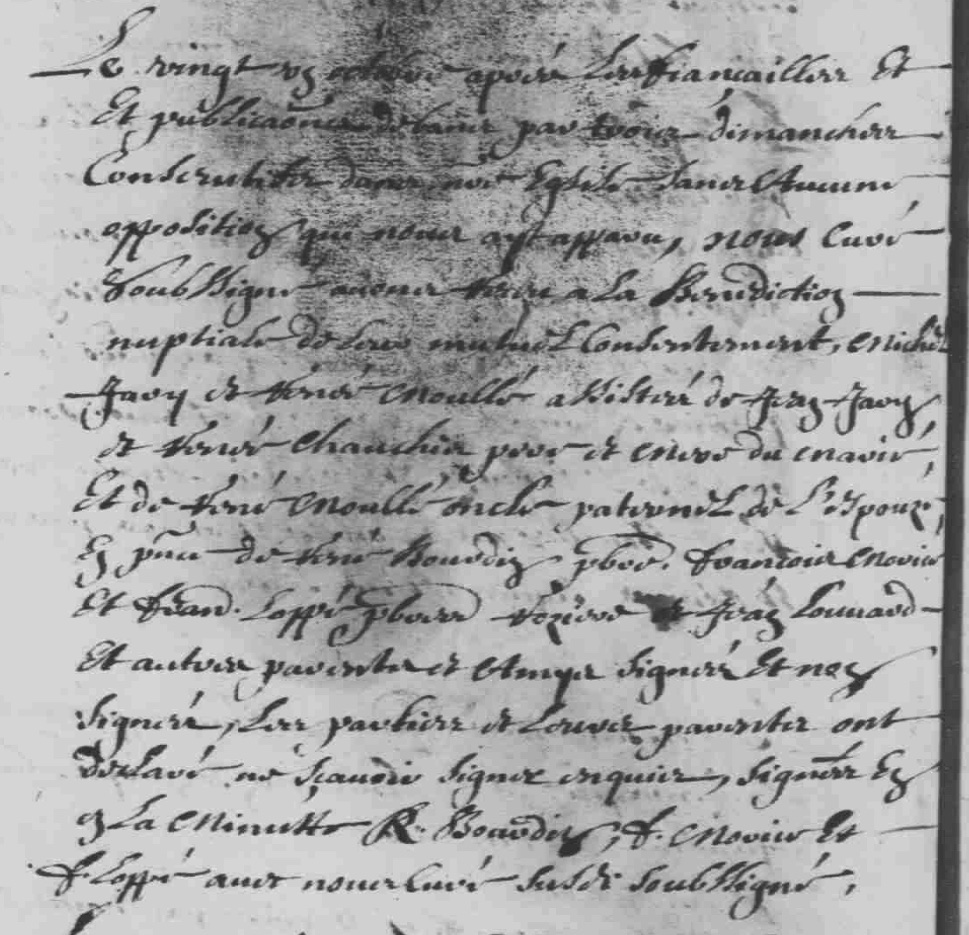 Le vingt octobre après les fiancailles Et
Et publicaõns de bans par trois dimanches
Consecutifs dans nrẽ Eglise sans Aucune
opposition qui nous ayt apparu, nous Curé
soubsigné avons receu a la Benediction
nuptiale de leur mutuel Consentement, Michel
Jary et Renée Moullé assistés de Jean Jary
et Renée Chauchix pere et Mere du Marié,
Et de René Moullé oncle paternel de l'Espouze,
En pñce de René Bourdin pbrẽ. François Morin
Et Fran. Loppé pbres Jean Louuard
Et autres parents et Amys signés Et non
signés, Les parties et leurs parents ont
declaré ne scauoir signer enquis, signés En
La Minutte R. Bourdin, F. Morin Et
F. Loppé auec nous Curé susdt soubsigné,